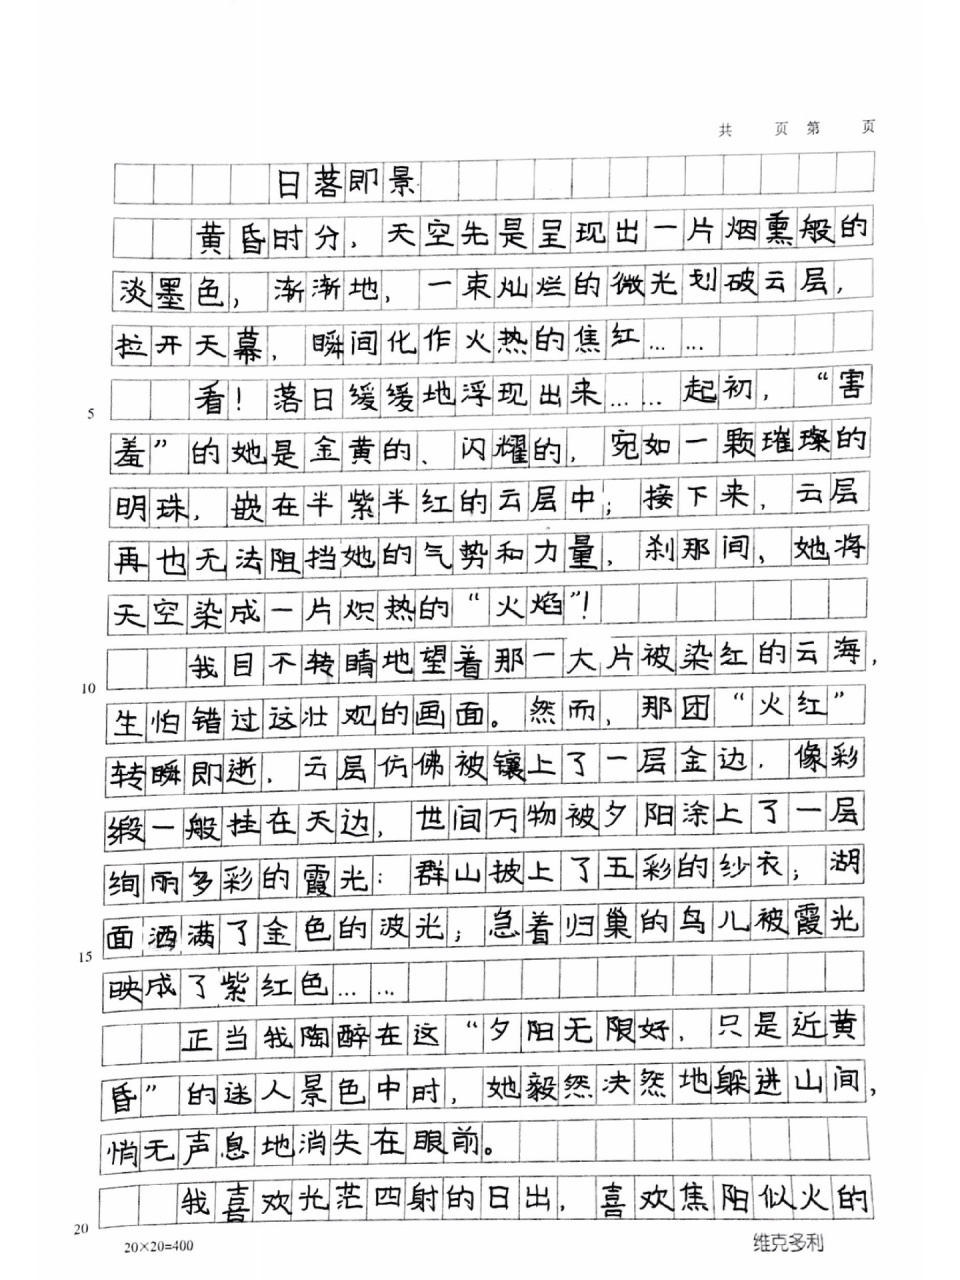 共 页 第 页
日落即景
黄昏时分，天空先是呈现出一片烟熏般的
淡墨色，渐渐地，一束灿烂的微光划破云层，
拉开天幕，瞬间化作火热的焦红……
5 看！落日缓缓地浮现出来……起初，“害
羞”的她是金黄的、闪耀的，宛如一颗璀璨的
明珠，嵌在半紫半红的云层中；接下来，云层
再也无法阻挡她的气势和力量，刹那间，她将
天空染成一片炽热的“火焰”！
10 我目不转睛地望着那一大片被染红的云海，
生怕错过这壮观的画面。然而，那团“火红”
转瞬即逝，云层仿佛被镶上了一层金边，像彩
缎一般挂在天边，世间万物被夕阳涂上了一层
绚丽多彩的霞光：群山披上了五彩的纱衣；湖
15 面洒满了金色的波光；急着归巢的鸟儿被霞光
映成了紫红色……
正当我陶醉在这“夕阳无限好，只是近黄
昏”的迷人景色中时，她毅然决然地躲进山间，
悄无声息地消失在眼前。
20 我喜欢光茫四射的日出，喜欢焦阳似火的
20×20=400 维克多利